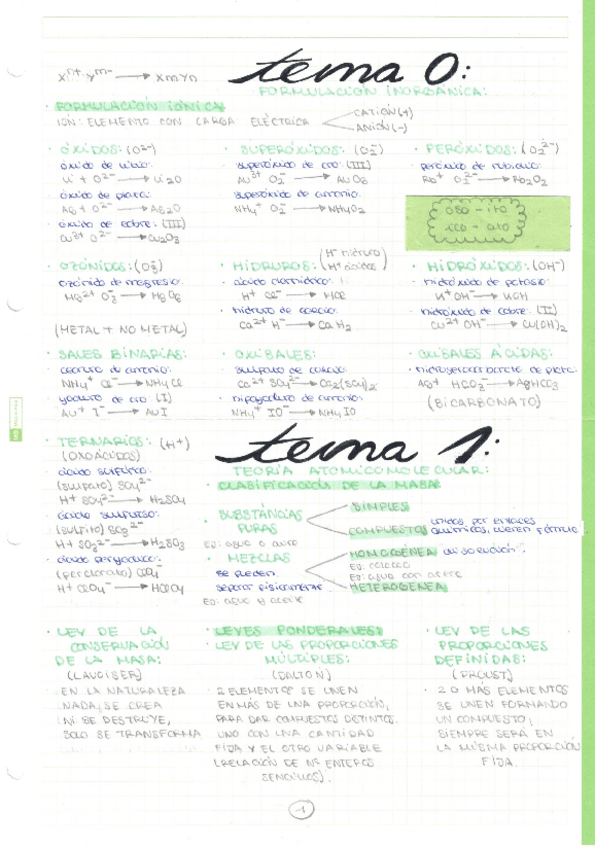 tema 0:
xⁿ⁺ yᵐ⁻ → xmyn
FORMULACIÓN INORGÁNICA:
FORMULACIÓN IÓNICA
IÓN: ELEMENTO CON CARGA ELÉCTRICA
CATIÓN (+)
ANIÓN (-)
· ÓXIDOS: (O²⁻)
óxido de litio:
Li⁺ O²⁻ → Li2O
óxido de plata:
Ag⁺ O²⁻ → Ag2O
óxido de cobre: (III)
Cu³⁺ O²⁻ → Cu2O3
· SUPERÓXIDOS: (O₂⁻)
superóxido de oro: (III)
Au³⁺ O₂⁻ → AuO6
superóxido de amonio:
NH₄⁺ O₂⁻ → NH4O2
· PERÓXIDOS: (O₂²⁻)
peróxido de rubidio:
Rb⁺ O₂²⁻ → Rb2O2
oso - ito
ico - ato
· OZÓNIDOS: (O₃⁻)
ozónido de magnesio:
Mg²⁺ O₃⁻ → MgO6
(METAL + NO METAL)
· HIDRUROS: (H⁻ hidruro
H⁺ ácidos)
· ácido clorhídrico:
H⁺ Cl⁻ → HCl
· hidruro de calcio:
Ca²⁺ H⁻ → CaH2
· HIDRÓXIDOS: (OH⁻)
· hidróxido de potasio:
K⁺ OH⁻ → KOH
· hidróxido de cobre: (II)
Cu²⁺ OH⁻ → Cu(OH)2
· SALES BINARIAS:
cloruro de amonio:
NH₄⁺ Cl⁻ → NH4Cl
yoduro de oro (I)
Au⁺ I⁻ → AuI
· OXISALES:
· sulfato de calcio:
Ca²⁺ SO₄²⁻ → Ca2(SO4)2
· hipoyodito de amonio:
NH₄⁺ IO⁻ → NH4IO
· OXISALES ÁCIDAS:
· hidrogenocarbonato de plata:
Ag⁺ HCO₃⁻ → AgHCO3
(BICARBONATO)
· TERNARIOS: (H⁺)
(OXOÁCIDOS)
ácido sulfúrico:
(sulfato) SO₄²⁻
H⁺ SO₄²⁻ → H2SO4
ácido sulfuroso:
(sulfito) SO₃²⁻
H⁺ SO₃²⁻ → H2SO3
(perclorato) ClO₄⁻
H⁺ ClO₄⁻ → HClO4
tema 1:
TEORÍA ATÓMICOMOLECULAR:
· CLASIFICACIÓN DE LA MASA:
· SUBSTÀNCIAS
PURAS
EJ: agua o auro
SIMPLES
COMPUESTOS unidos por enlaces
químicos, tienen fórmula
· MEZCLAS
se pueden
separar físicamente
EJ: agua y aceite
HOMOGÉNEA "disolución".
EJ: colacao
EJ: agua con aceite
HETEROGÉNEA
· LEY DE LA
CONSERVACIÓN
DE LA MASA:
(LAVOISER)
· EN LA NATURALEZA
NADA, SE CREA
NI SE DESTRUYE,
SOLO SE TRANSFORMA
· LEYES PONDERALES:
· LEY DE LAS PROPORCIONES
MÚLTIPLES:
(DALTON)
· 2 ELEMENTOS SE UNEN
EN MÁS DE UNA PROPORCIÓN,
PARA DAR COMPUESTOS DISTINTOS.
UNO CON UNA CANTIDAD
FIJA Y EL OTRO VARIABLE
(RELACIÓN DE Nº ENTEROS
SENCILLOS).
· LEY DE LAS
PROPORCIONES
DEFINIDAS:
(PROUST)
· 2 O MÁS ELEMENTOS
SE UNEN FORMANDO
UN COMPUESTO,
SIEMPRE SERÁ EN
LA MISMA PROPORCIÓN
FIJA.
-1